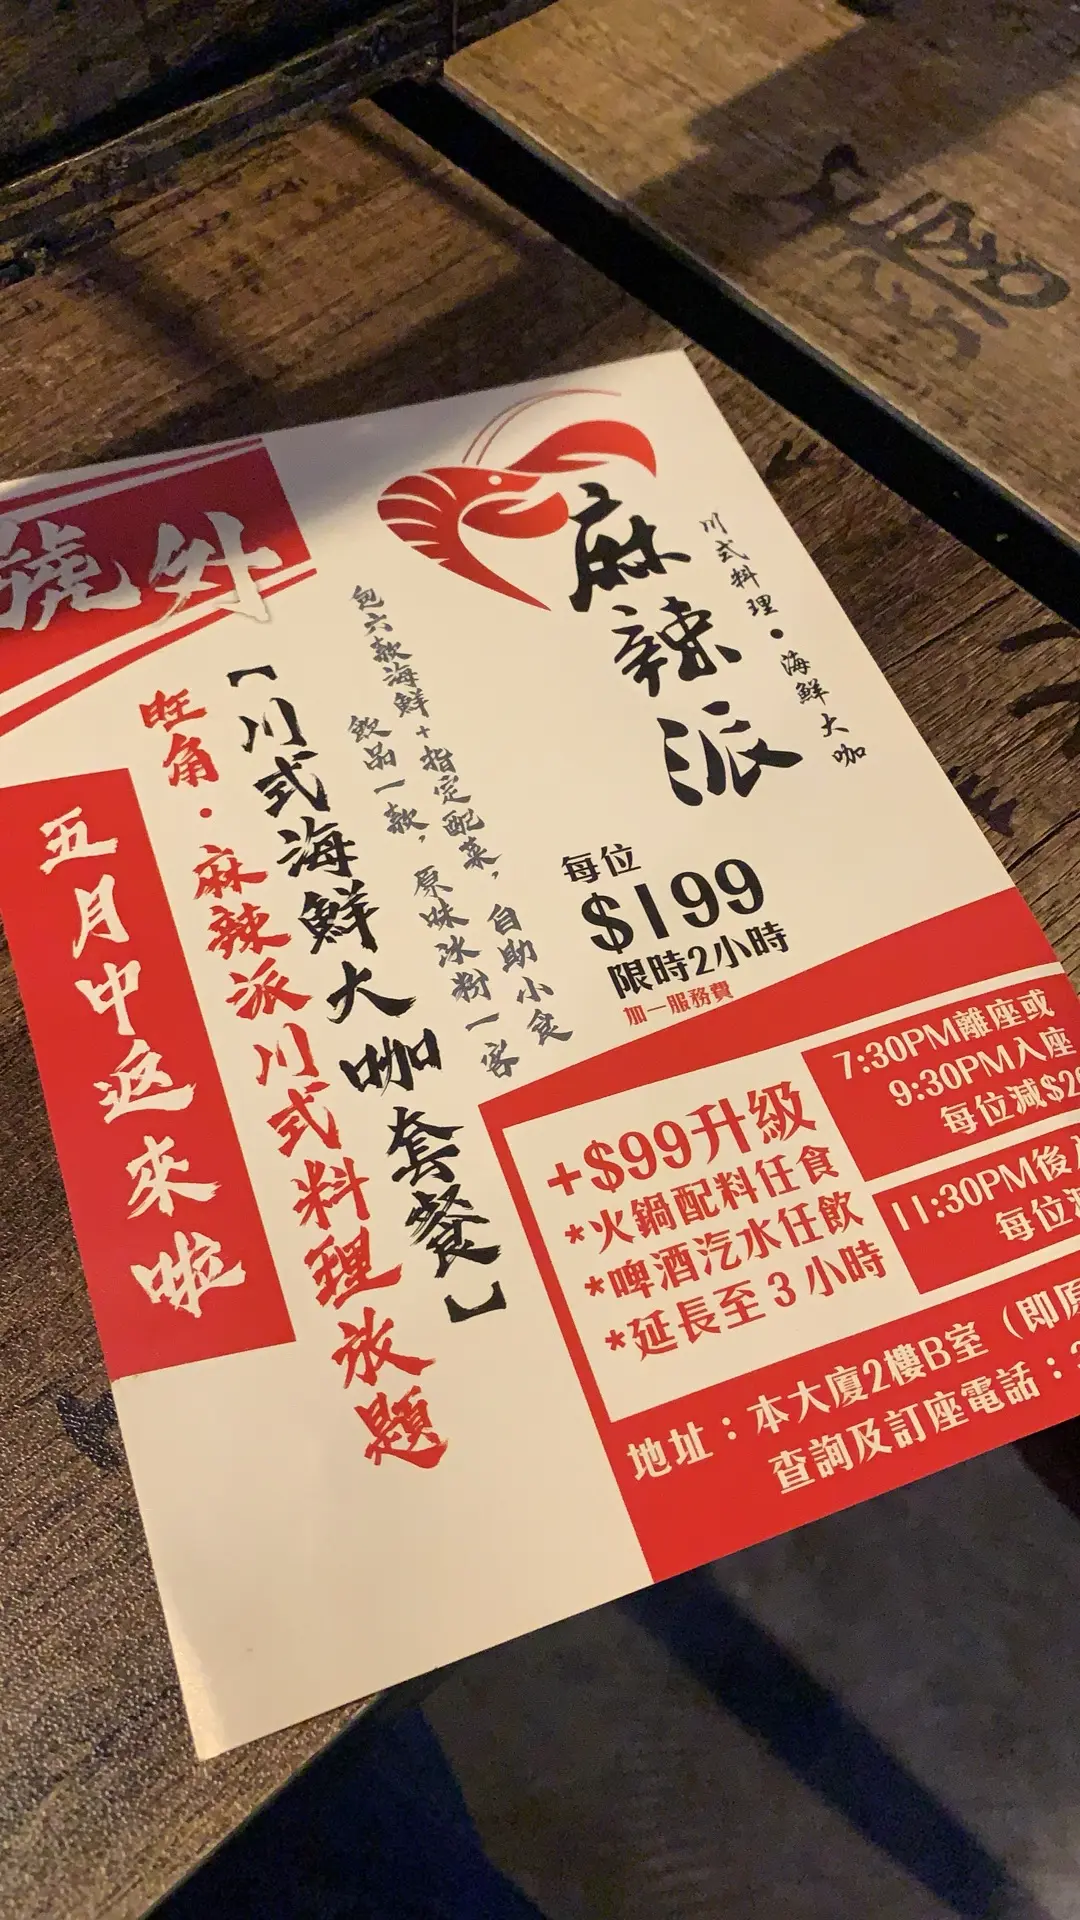 號外
麻辣派
川式料理・海鮮大咖
包六款海鮮+指定配菜，自助小食
飲品一款，原味冰粉一客
【川式海鮮大咖套餐】
旺角・麻辣派川式料理放題
五月中返來啦
每位
$199
限時2小時
加一服務費
+$99升級
*火鍋配料任食
*啤酒汽水任飲
*延長至3小時
7:30PM離座或
9:30PM入座
每位減$2
11:30PM後
每位
地址：本大廈2樓B室（即原
查詢及訂座電話：